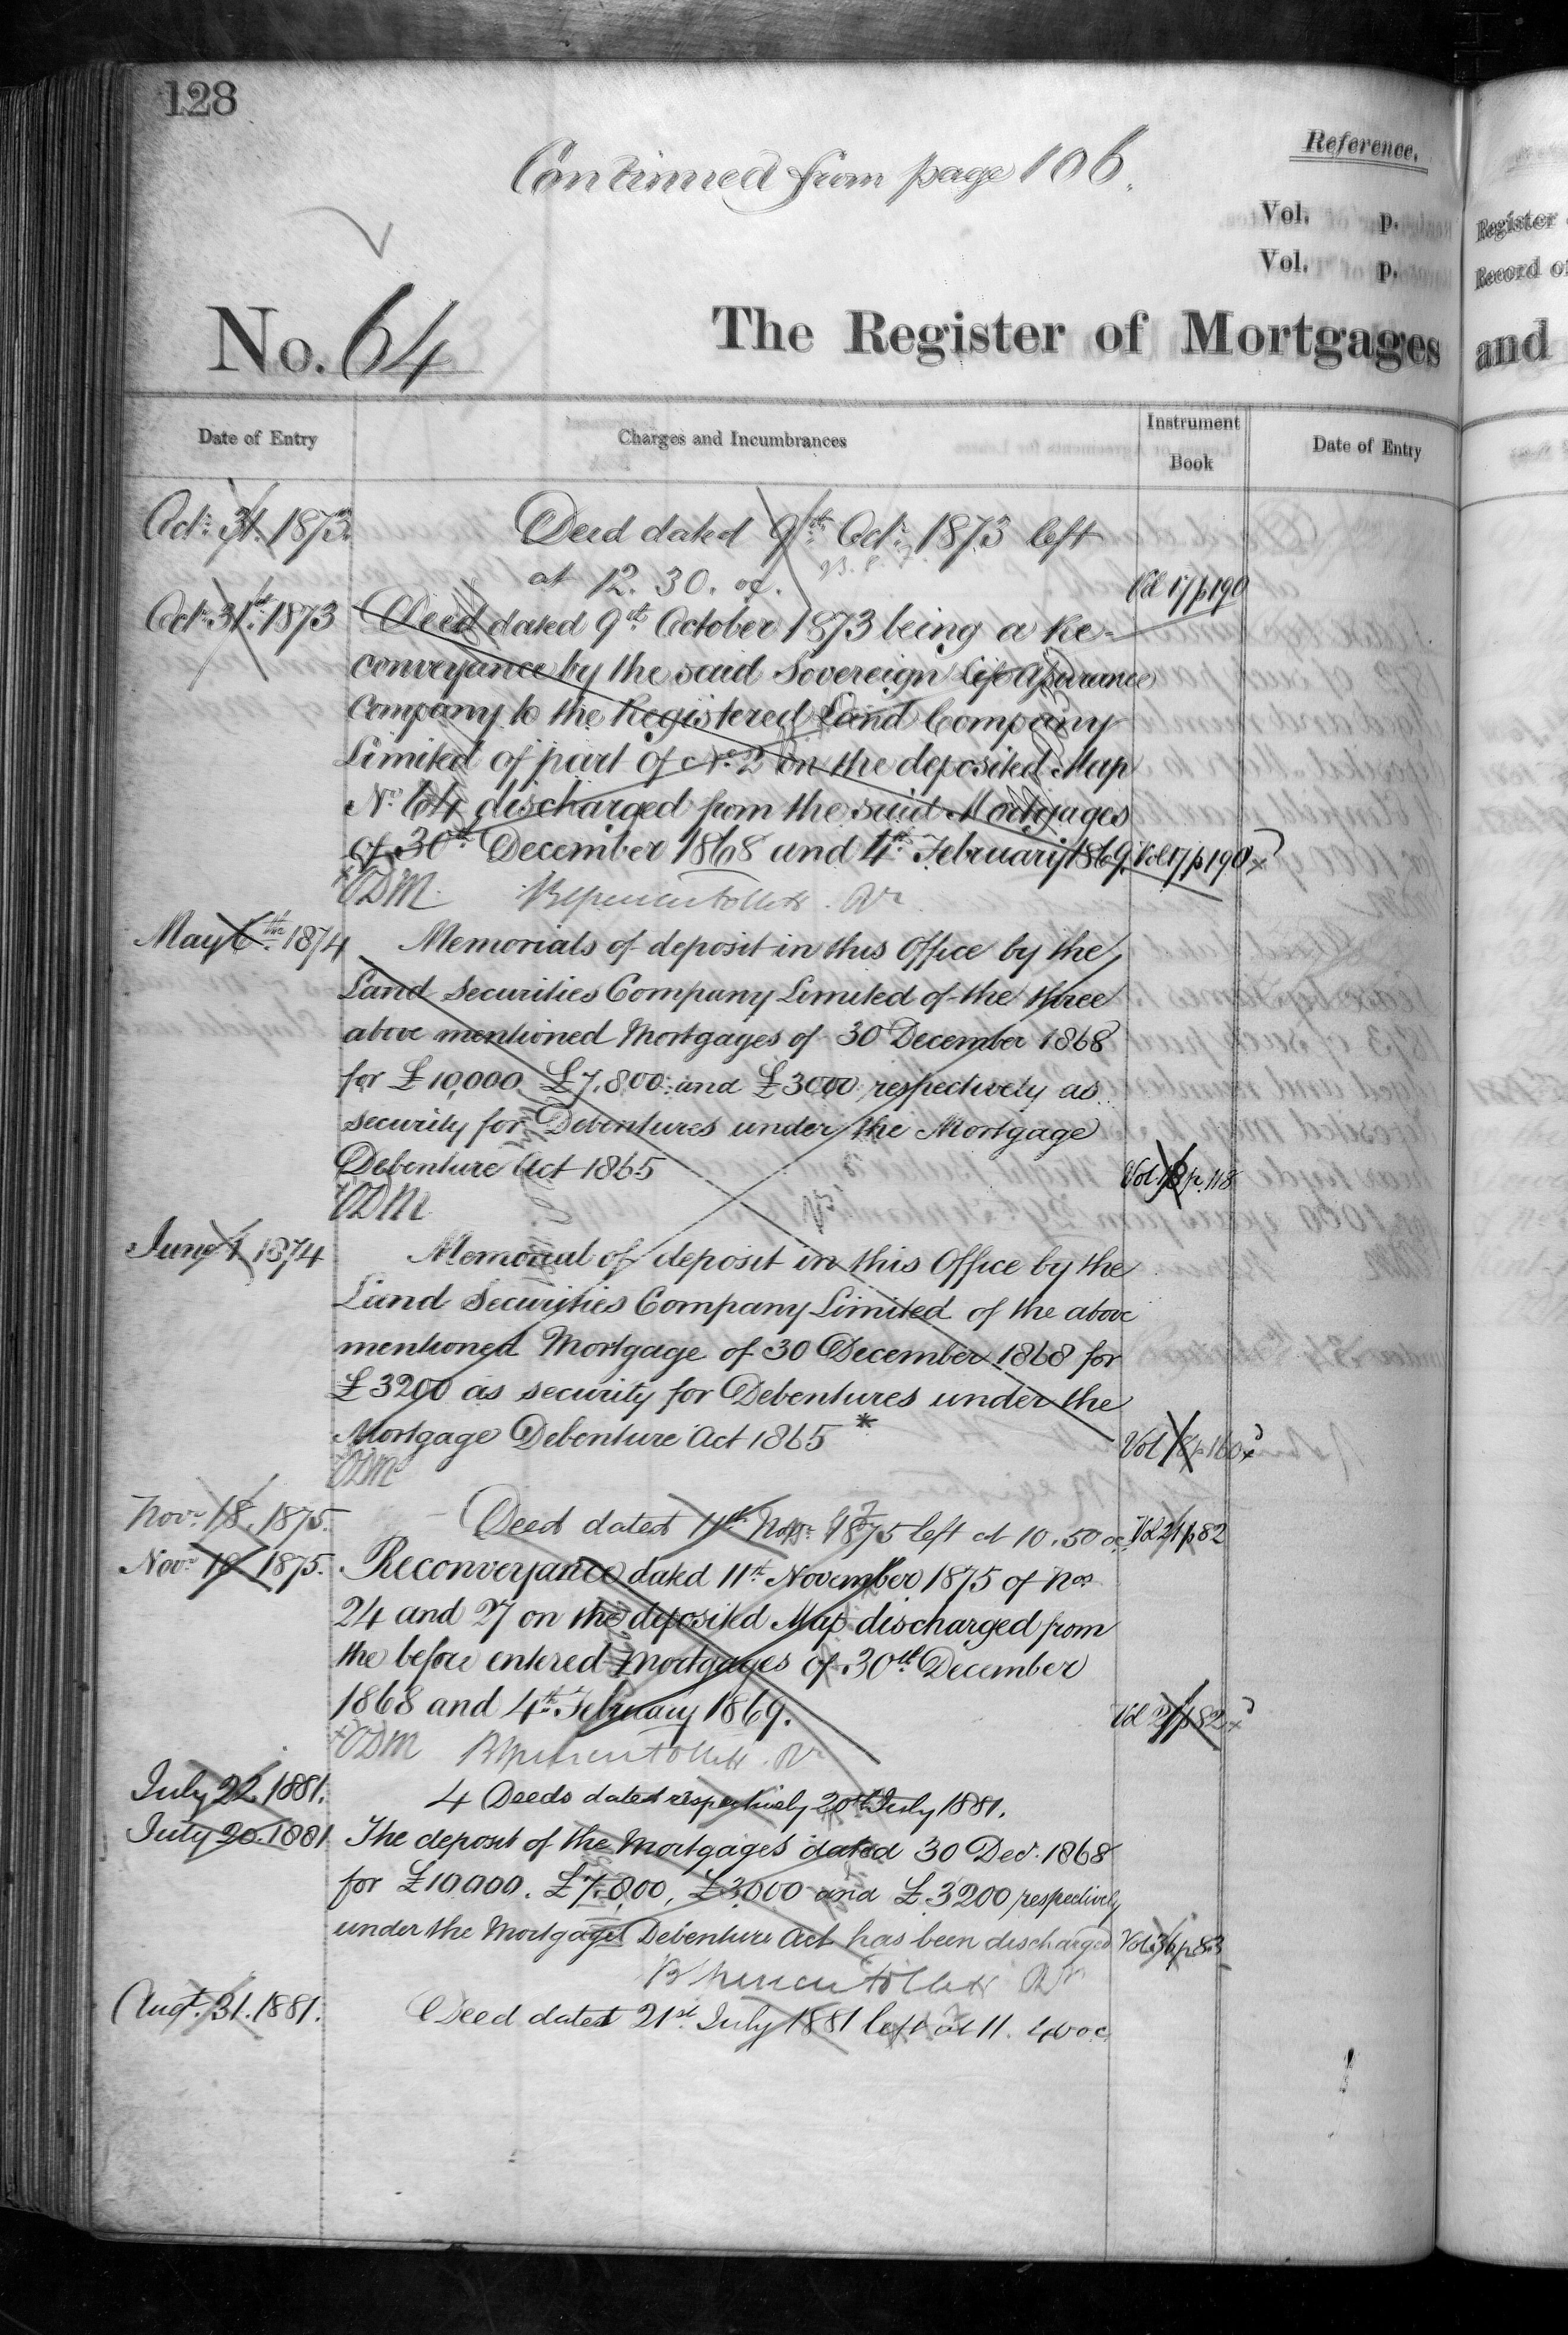 128
Continued from page 106.
Reference.
Vol. p.
Vol. p.
Register
Record of
No. 64
The Register of Mortgages
and
Date of Entry
Charges and Incumbrances
Instrument Book
Date of Entry
Octr. 31. 1873.
Deed dated 9th Octr. 1873 left
at 12. 30. oc.
Vol 17 p 190
Octr. 31st. 1873
Deed dated 9th October 1873 being a Re-
conveyance by the said Sovereign Life Assurance
Company to the Registered Land Company
Limited of part of No. 2 on the deposited Map
No. 64 discharged from the said Mortgages
of 30th December 1868 and 4th February 1869.
Vol 17 p 190
ODM
May 6th 1874
Memorials of deposit in this Office by the
Land Securities Company Limited of the three
above mentioned Mortgages of 30 December 1868
for £10,000 £7,800 and £3000 respectively as
security for Debentures under the Mortgage
Debenture Act 1865
Vol. 18 p. 118
ODM
June 1 1874
Memorial of deposit in this Office by the
Land Securities Company Limited of the above
mentioned Mortgage of 30 December 1868 for
£3200 as security for Debentures under the
Mortgage Debenture Act 1865 *
Vol 18 p 160
ODM
Novr. 18. 1875.
Deed dated 11th Novr. 1875 left at 10.50 oc.
Vol 21 p 82
Novr. 18 1875.
Reconveyance dated 11th November 1875 of Nos.
24 and 27 on the deposited Map discharged from
the before entered Mortgages of 30th December
1868 and 4th February 1869.
Vol 21 p 82
ODM
July 22. 1881.
4 Deeds dated respectively 20th July 1881.
July 20. 1881
The deposit of the Mortgages dated 30 Decr. 1868
for £10,000. £7,800, £3,000 and £3200 respectively
under the Mortgage Debenture Act has been discharged
Vol. 36 p. 83
Augt. 31. 1881.
Deed dated 21st July 1881 left at 11. 40 oc